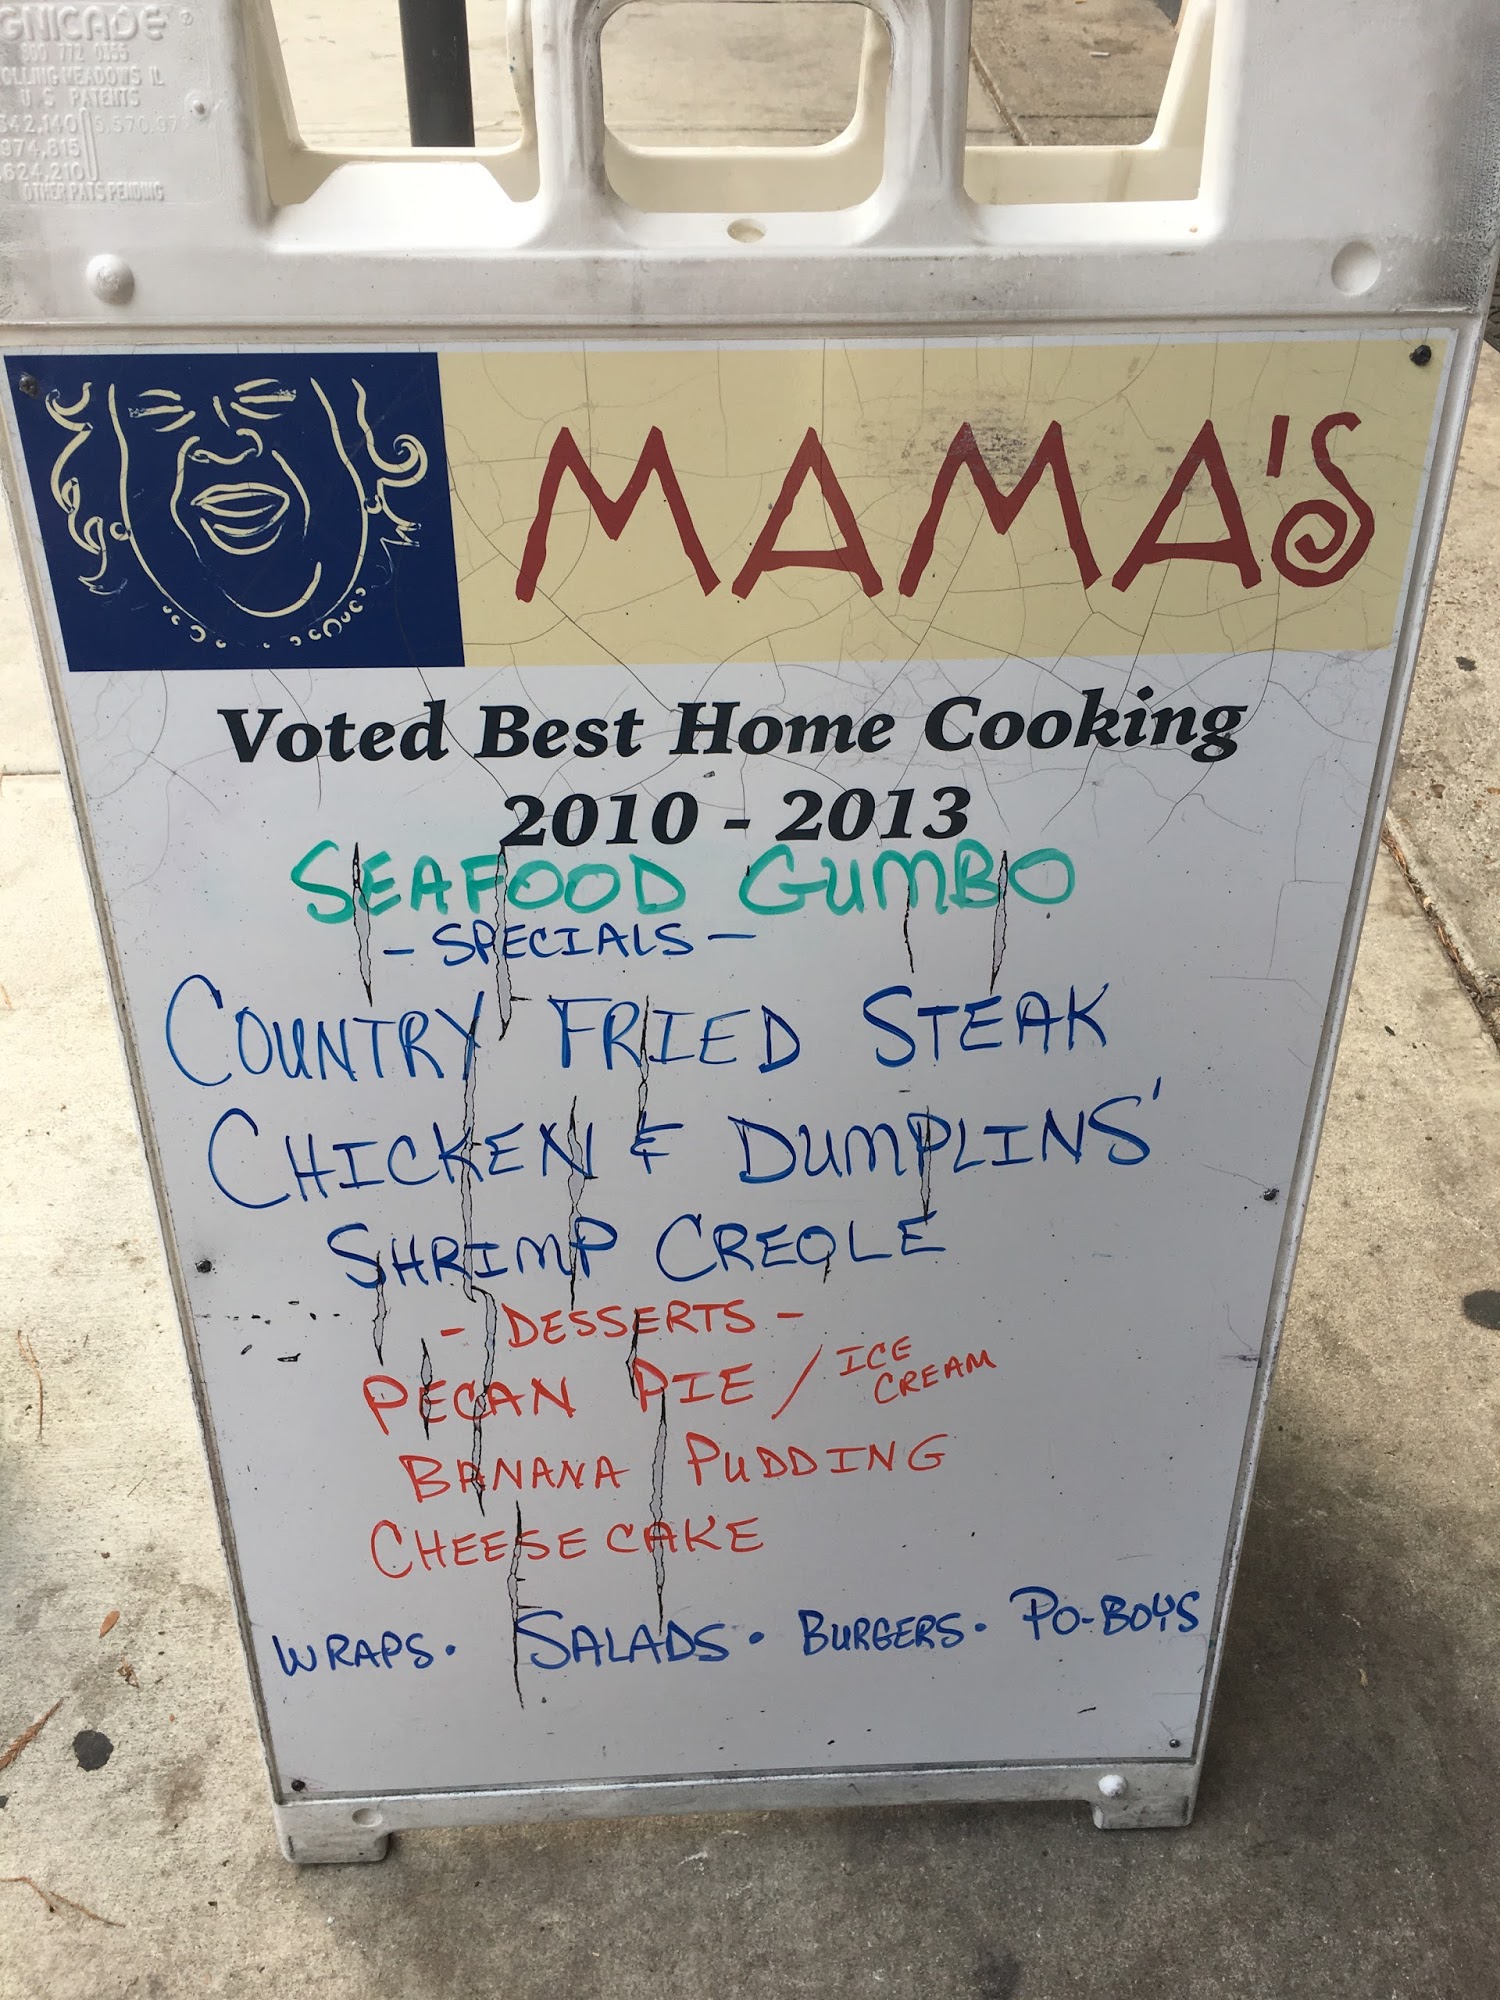 GNICADE
800 772 0355
OLLING MEADOWS IL
U S PATENTS
342,140 5,570,97
974,815
624,210
OTHER PATS PENDING
MAMA'S
Voted Best Home Cooking
2010 - 2013
SEAFOOD GUMBO
- SPECIALS -
COUNTRY FRIED STEAK
CHICKEN & DUMPLINS'
SHRIMP CREOLE
- DESSERTS -
PECAN PIE / ICE CREAM
BANANA PUDDING
CHEESE CAKE
WRAPS • SALADS • BURGERS • PO-BOYS